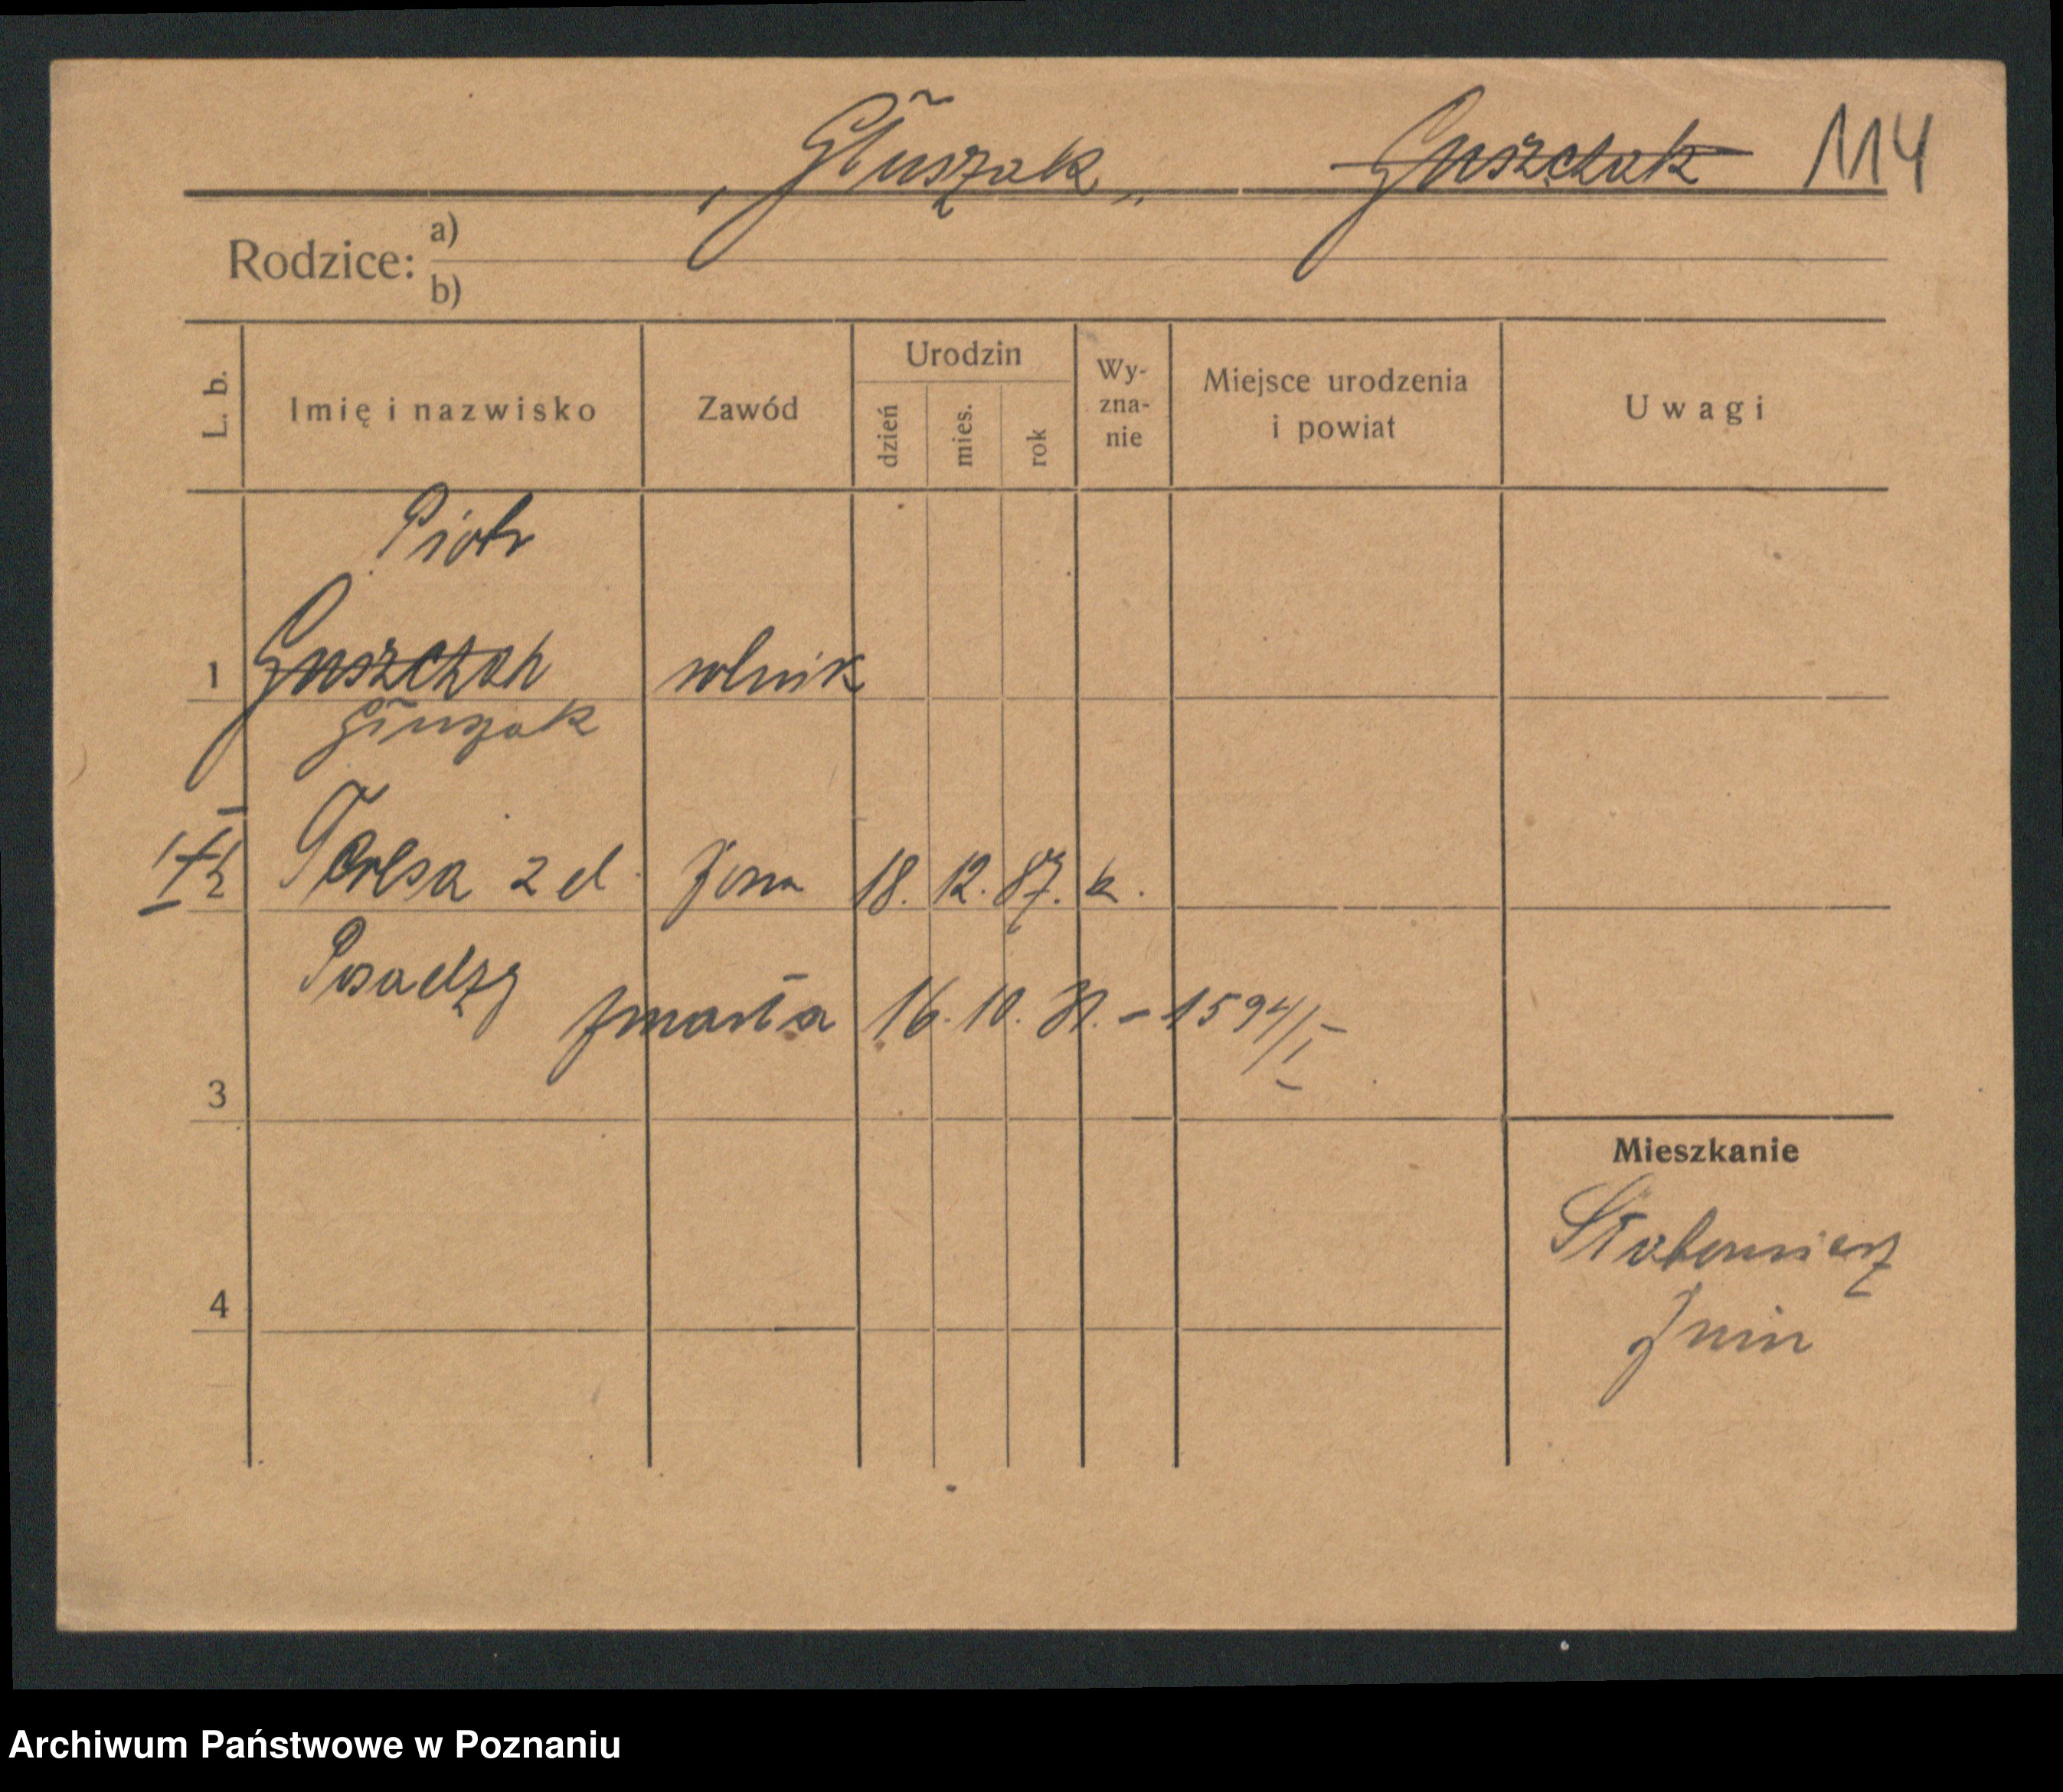 „Głuszak” Guszczak 114
Rodzice: a)
b)
L. b. Imię i nazwisko Zawód Urodzin dzień mies. rok Wy-zna-nie Miejsce urodzenia i powiat Uwagi
Piotr
1 Guszczak rolnik
Głuszak
2 Teresa z d. żona 18. 12. 87. k.
Posadzy
zmarła 16. 10. 31. – 1594/I
3
Mieszkanie
4
Żnin
Archiwum Państwowe w Poznaniu